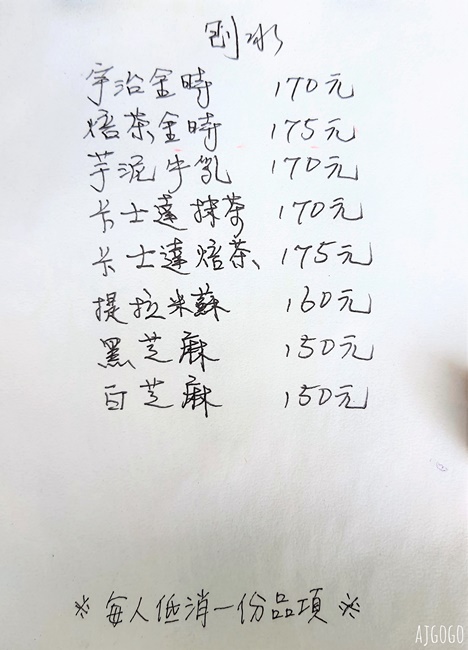 刨冰
宇治金時 170元
焙茶金時 175元
芋泥牛乳 170元
卡士達抹茶 170元
卡士達焙茶 175元
提拉米蘇 160元
黑芝麻 150元
白芝麻 150元
※每人低消一份品項※
AJGOGO